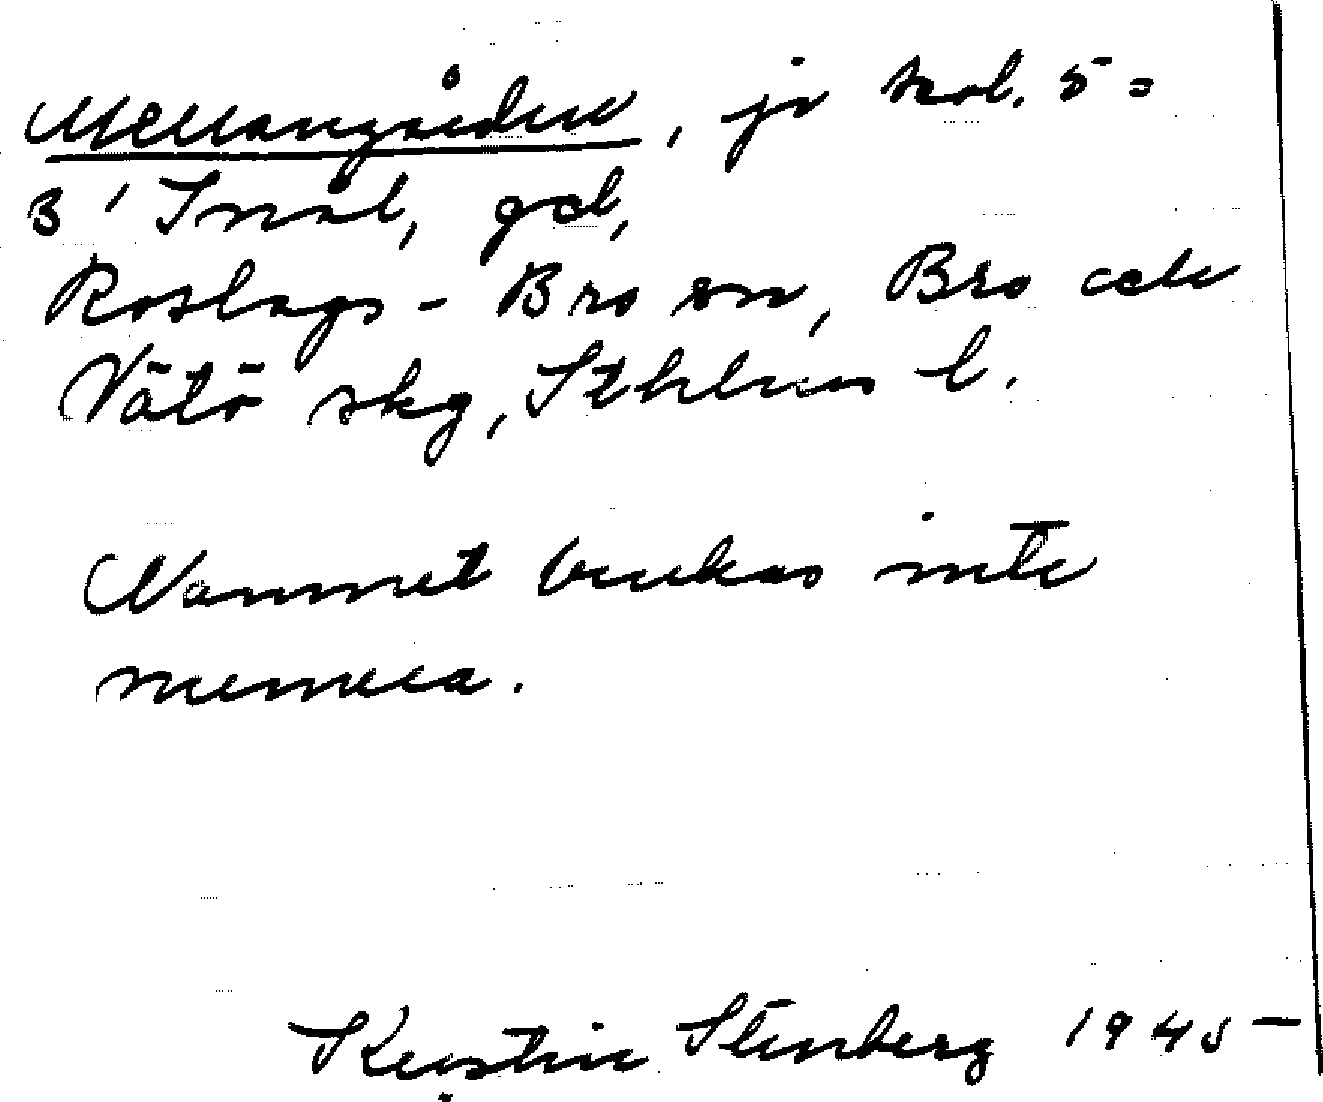 Mellangården, jr kol. 5=
3 ' Snål, gd,
Roslags-Bro sn, Bro och
Vätö skg, Sthlms l.
Namnet brukas inte
numera.
Kerstin Stenberg 1945